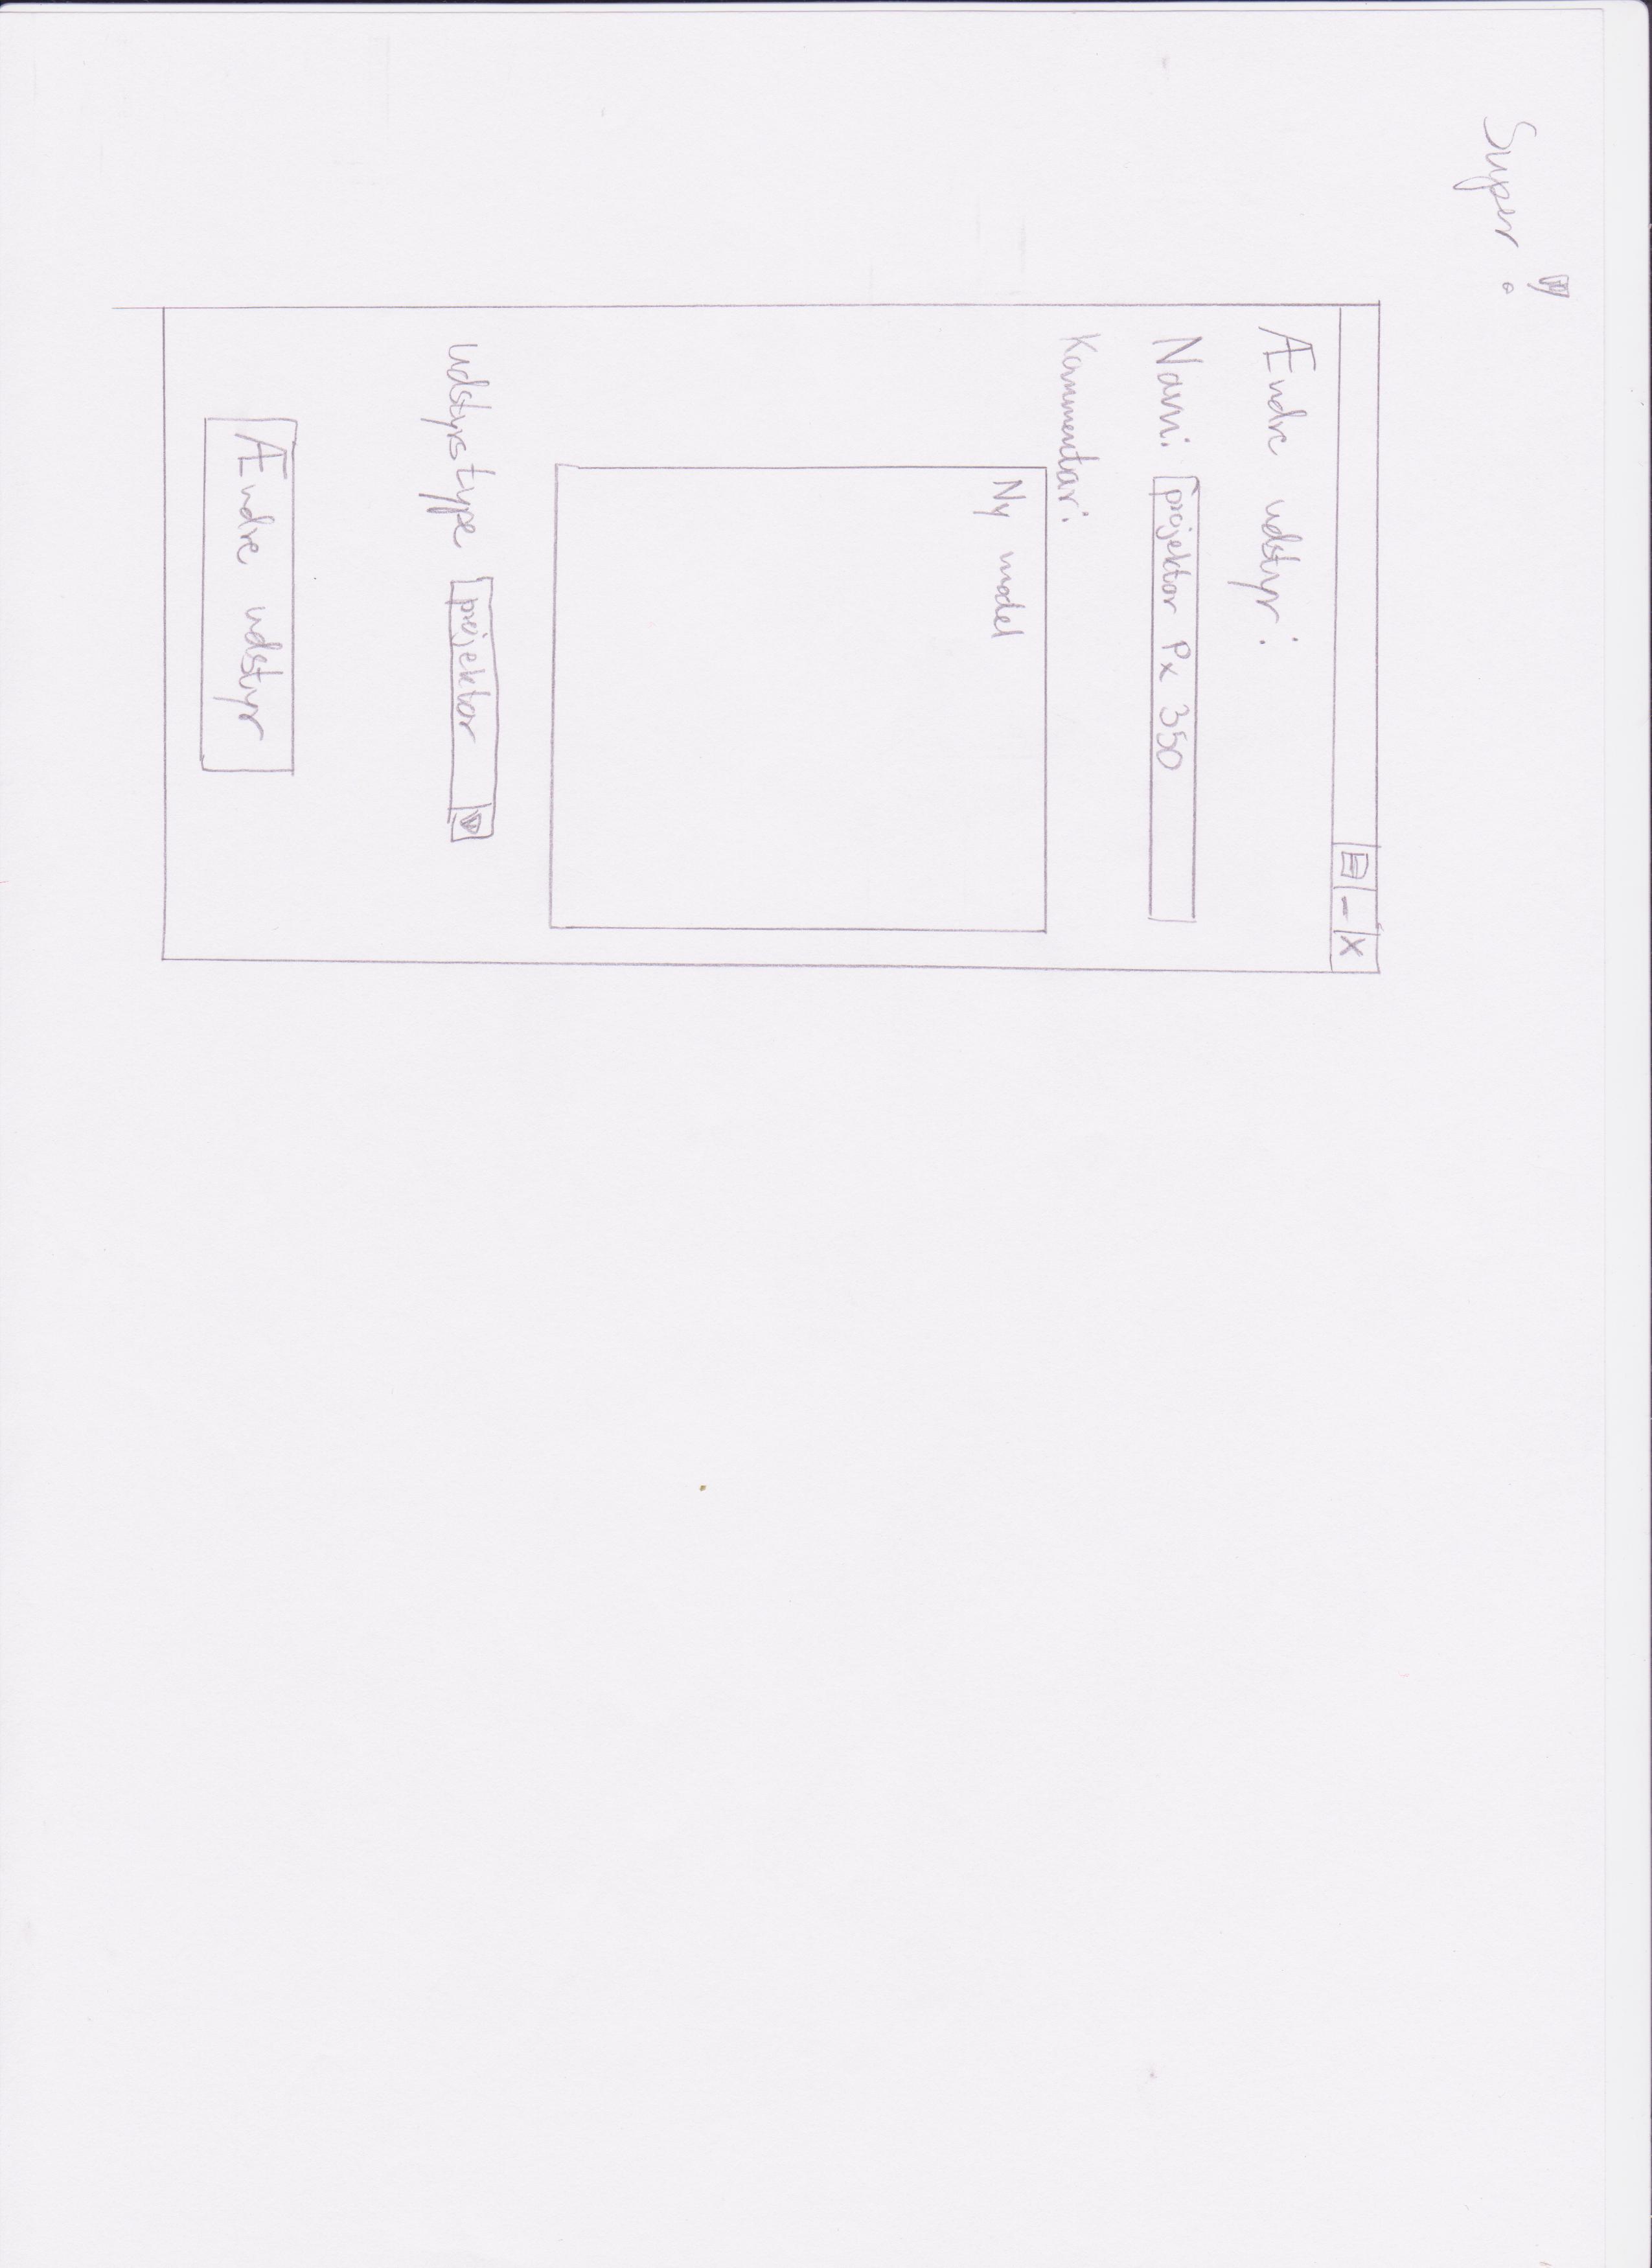 Super!
X
Ændre udstyr:
Navn: projektor Px 350
Kommentar:
Ny model
Udstyrstype projektor
Ændre udstyr